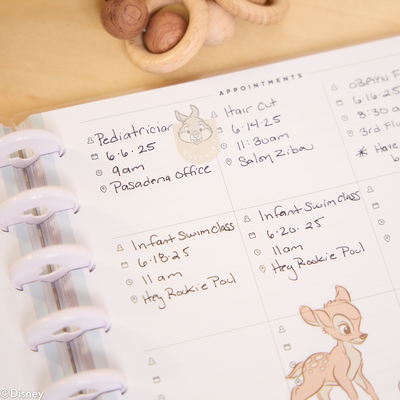 APPOINTMENTS
Pediatrician
6.6.25
9am
Pasadena Office
Hair Cut
6.14.25
11:30am
Salon Ziba
OBGYN
6.16.25
8:30
3rd
Have
Infant Swim Class
6.18.25
11am
Hey Rookie Pool
Infant Swim Class
6.20.25
11am
Hey Rookie Pool
©Disney